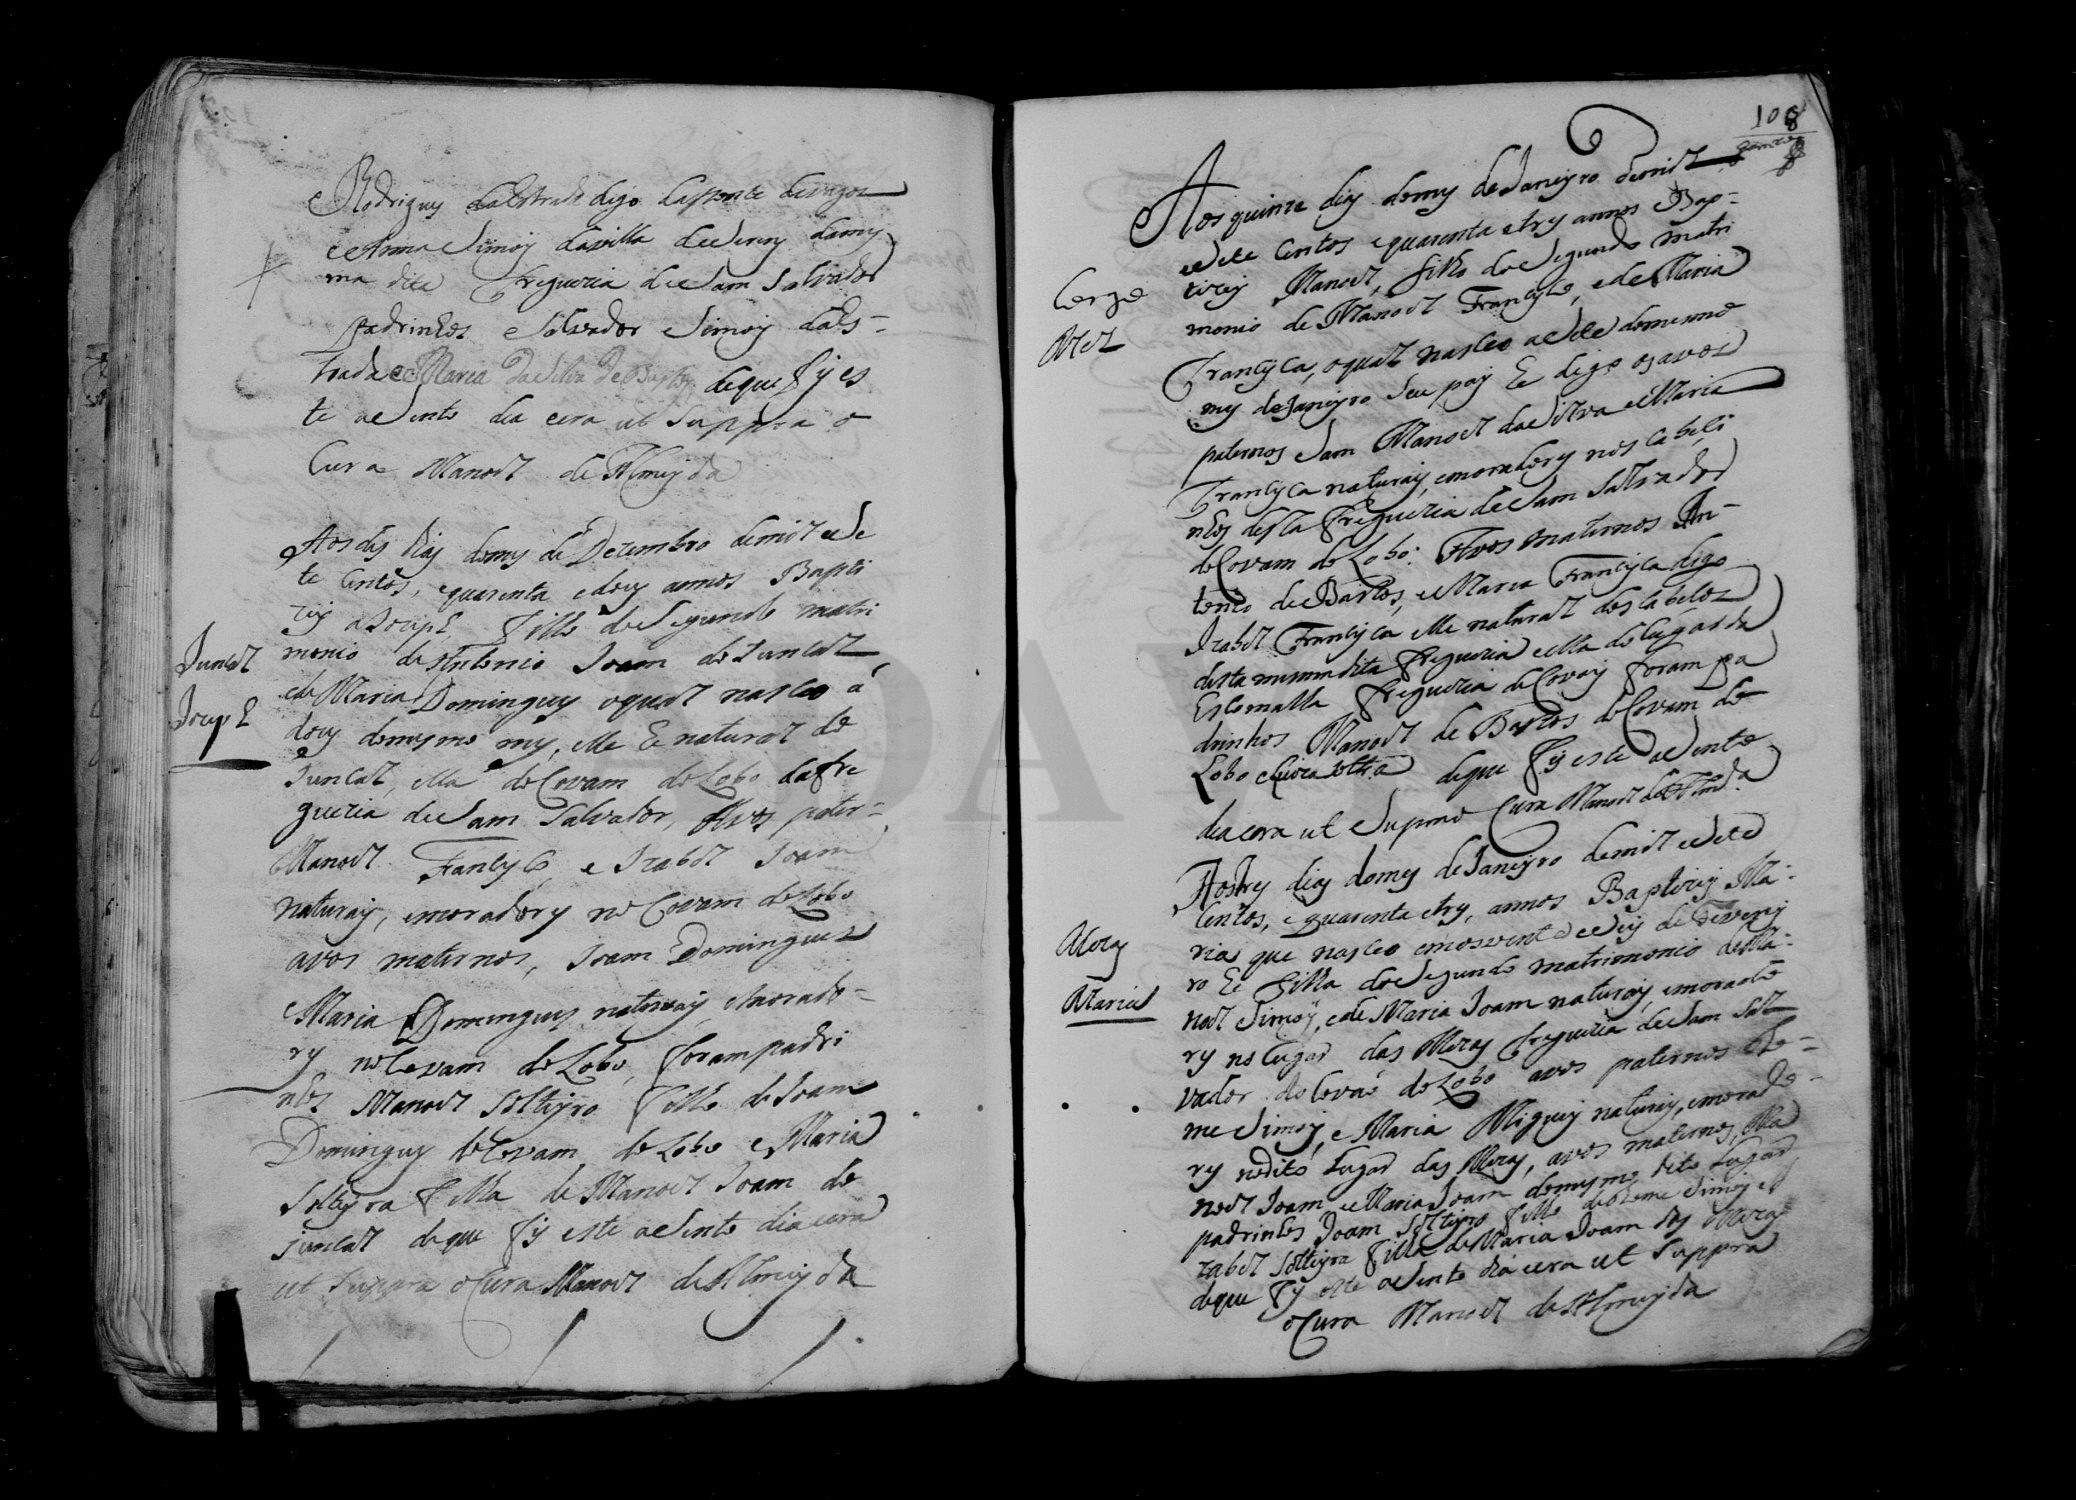 Rodrigues da Estrada digo da ponte de vagos
e Anna Simois da villa de
ma dita freguezia de Sam Salvador
padrinhos Salvador Simois da Es-
trada e Maria da Silva de Bastos de que fis es
te asento dia e era ut suppra o
Cura Manoel de Almeyda
Aos des dias do mes de Dezembro de mil e se
te centos, e quarenta e dous annos Bapti
zei a Joseph, filho do segundo matri
monio de Antonio Joam do Juncal
e de Maria Domingues o qual nasceo a
dous do mesmo mes, elle he natural do
Juncal, ella do Covam do Lobo da fre
guezia de Sam Salvador, Avos pater-
Manoel Francisco e Izabel Joam
naturais, e moradores no Covam do Lobo
avos maternos, Joam Domingues
Maria Domingues naturais, e morado-
res no Covam do Lobo, foram padri
nhos Manoel solteyro filho de Joam
Domingues do Covam do Lobo e Maria
solteyra filha de Manoel Joam do
juncal de que fis este asento dia e era
ut suppra o Cura Manoel de Almeyda
Juncal
Joseph
108
Aos quinze dias do mes de Janeyro de mil
e sete centos e quarenta e tres annos Bap-
tizei Manoel, filho do segundo matri
monio de Manoel Francisco, e de Maria
Francisca, o qual nasceo a sete do mesmo
mes de Janeyro seu pay he digo os avos
paternos Sam Manoel da Silva e Maria
Francisca naturais, e moradores nos Cabeci
nhos desta freguezia de Sam Salvador
do Covam do Lobo: Avos maternos An-
tonio de Bastos, e Maria Francisca digo
Izabel Francisca elle natural dos
desta mesma dita freguezia e ella do lugar da
Escomalha freguezia de Covois foram pa
drinhos Manoel de Bastos do Covam do
Lobo de que fis este asento
dia e era ut supra o Cura Manoel de Almda.
Aos tres dias do mes de Janeyro de mil e sete
centos, e quarenta e tres, annos Baptizei Ma-
ria que nasceo em os vinte e seis de Deverey
ro he filha do segundo matrimonio de Ma-
noel Simois, e de Maria Joam naturais, e morado
res no lugar das Mezas freguezia de Sam Sal
vador do Covão do Lobo avos paternos Tho-
me Simois, e Maria Migueis naturais, e morado-
res no dito lugar das Mezas, avos maternos, Ma
noel Joam, e Maria Joam do mesmo dito lugar
padrinhos Joam solteyro filho de Thome Simois e I
zabel solteyra filha de Maria Joam das Mezas
de que fis este asento dia e era ut suppra
o Cura Manoel de Almeyda
Mel
Mezas
Maria